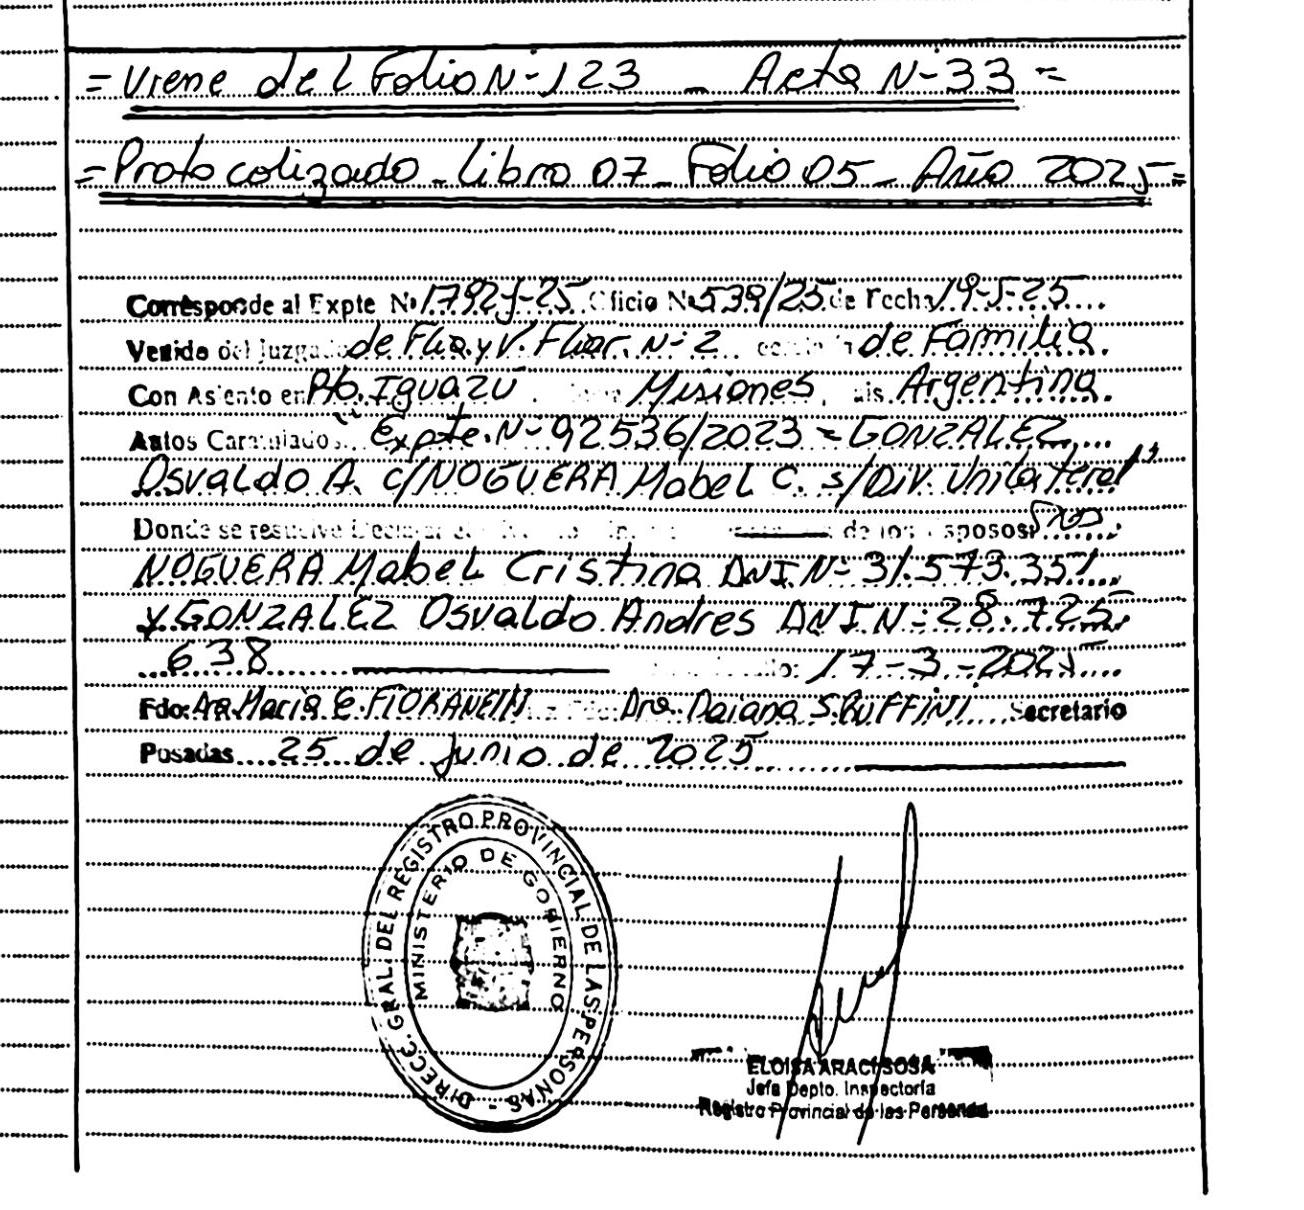 = Viene del Folio N° 123 _ Acta N° 33 =
= Protocolizado _ Libro 07 _ Folio 05 _ Año 2025 =
Corresponde al Expte N° 1792-J-25 Oficio N° 539/25 de Fecha 19-5-25
Venido del Juzgado de Flia. y V. Fliar. N° 2 de Familia
Con Asiento en Pto. Iguazú Misiones, ais Argentina.
Autos Caratulados "Expte. N° 92536/2023 = GONZALEZ
Osvaldo A. c/NOGUERA Mabel C. s/Div. Unilateral"
Donde se resuelve Declarar de los Esposos:
NOGUERA Mabel Cristina DNI N° 31.573.351
y GONZALEZ Osvaldo Andres DNI N° 28.725.
638 17-3-2025
Fdo: Dra. Maria E. FIORANELLI Fdo: Dra. Daiana S. BUFFINI Secretario
Posadas 25 de Junio de 2025
DIRECC. GRAL. DEL REGISTRO PROVINCIAL DE LAS PERSONAS -
MINISTERIO DE GOBIERNO
ELOISA ARACI SOSA
Jefa Depto. Inspectoría
Registro Provincial de las Personas